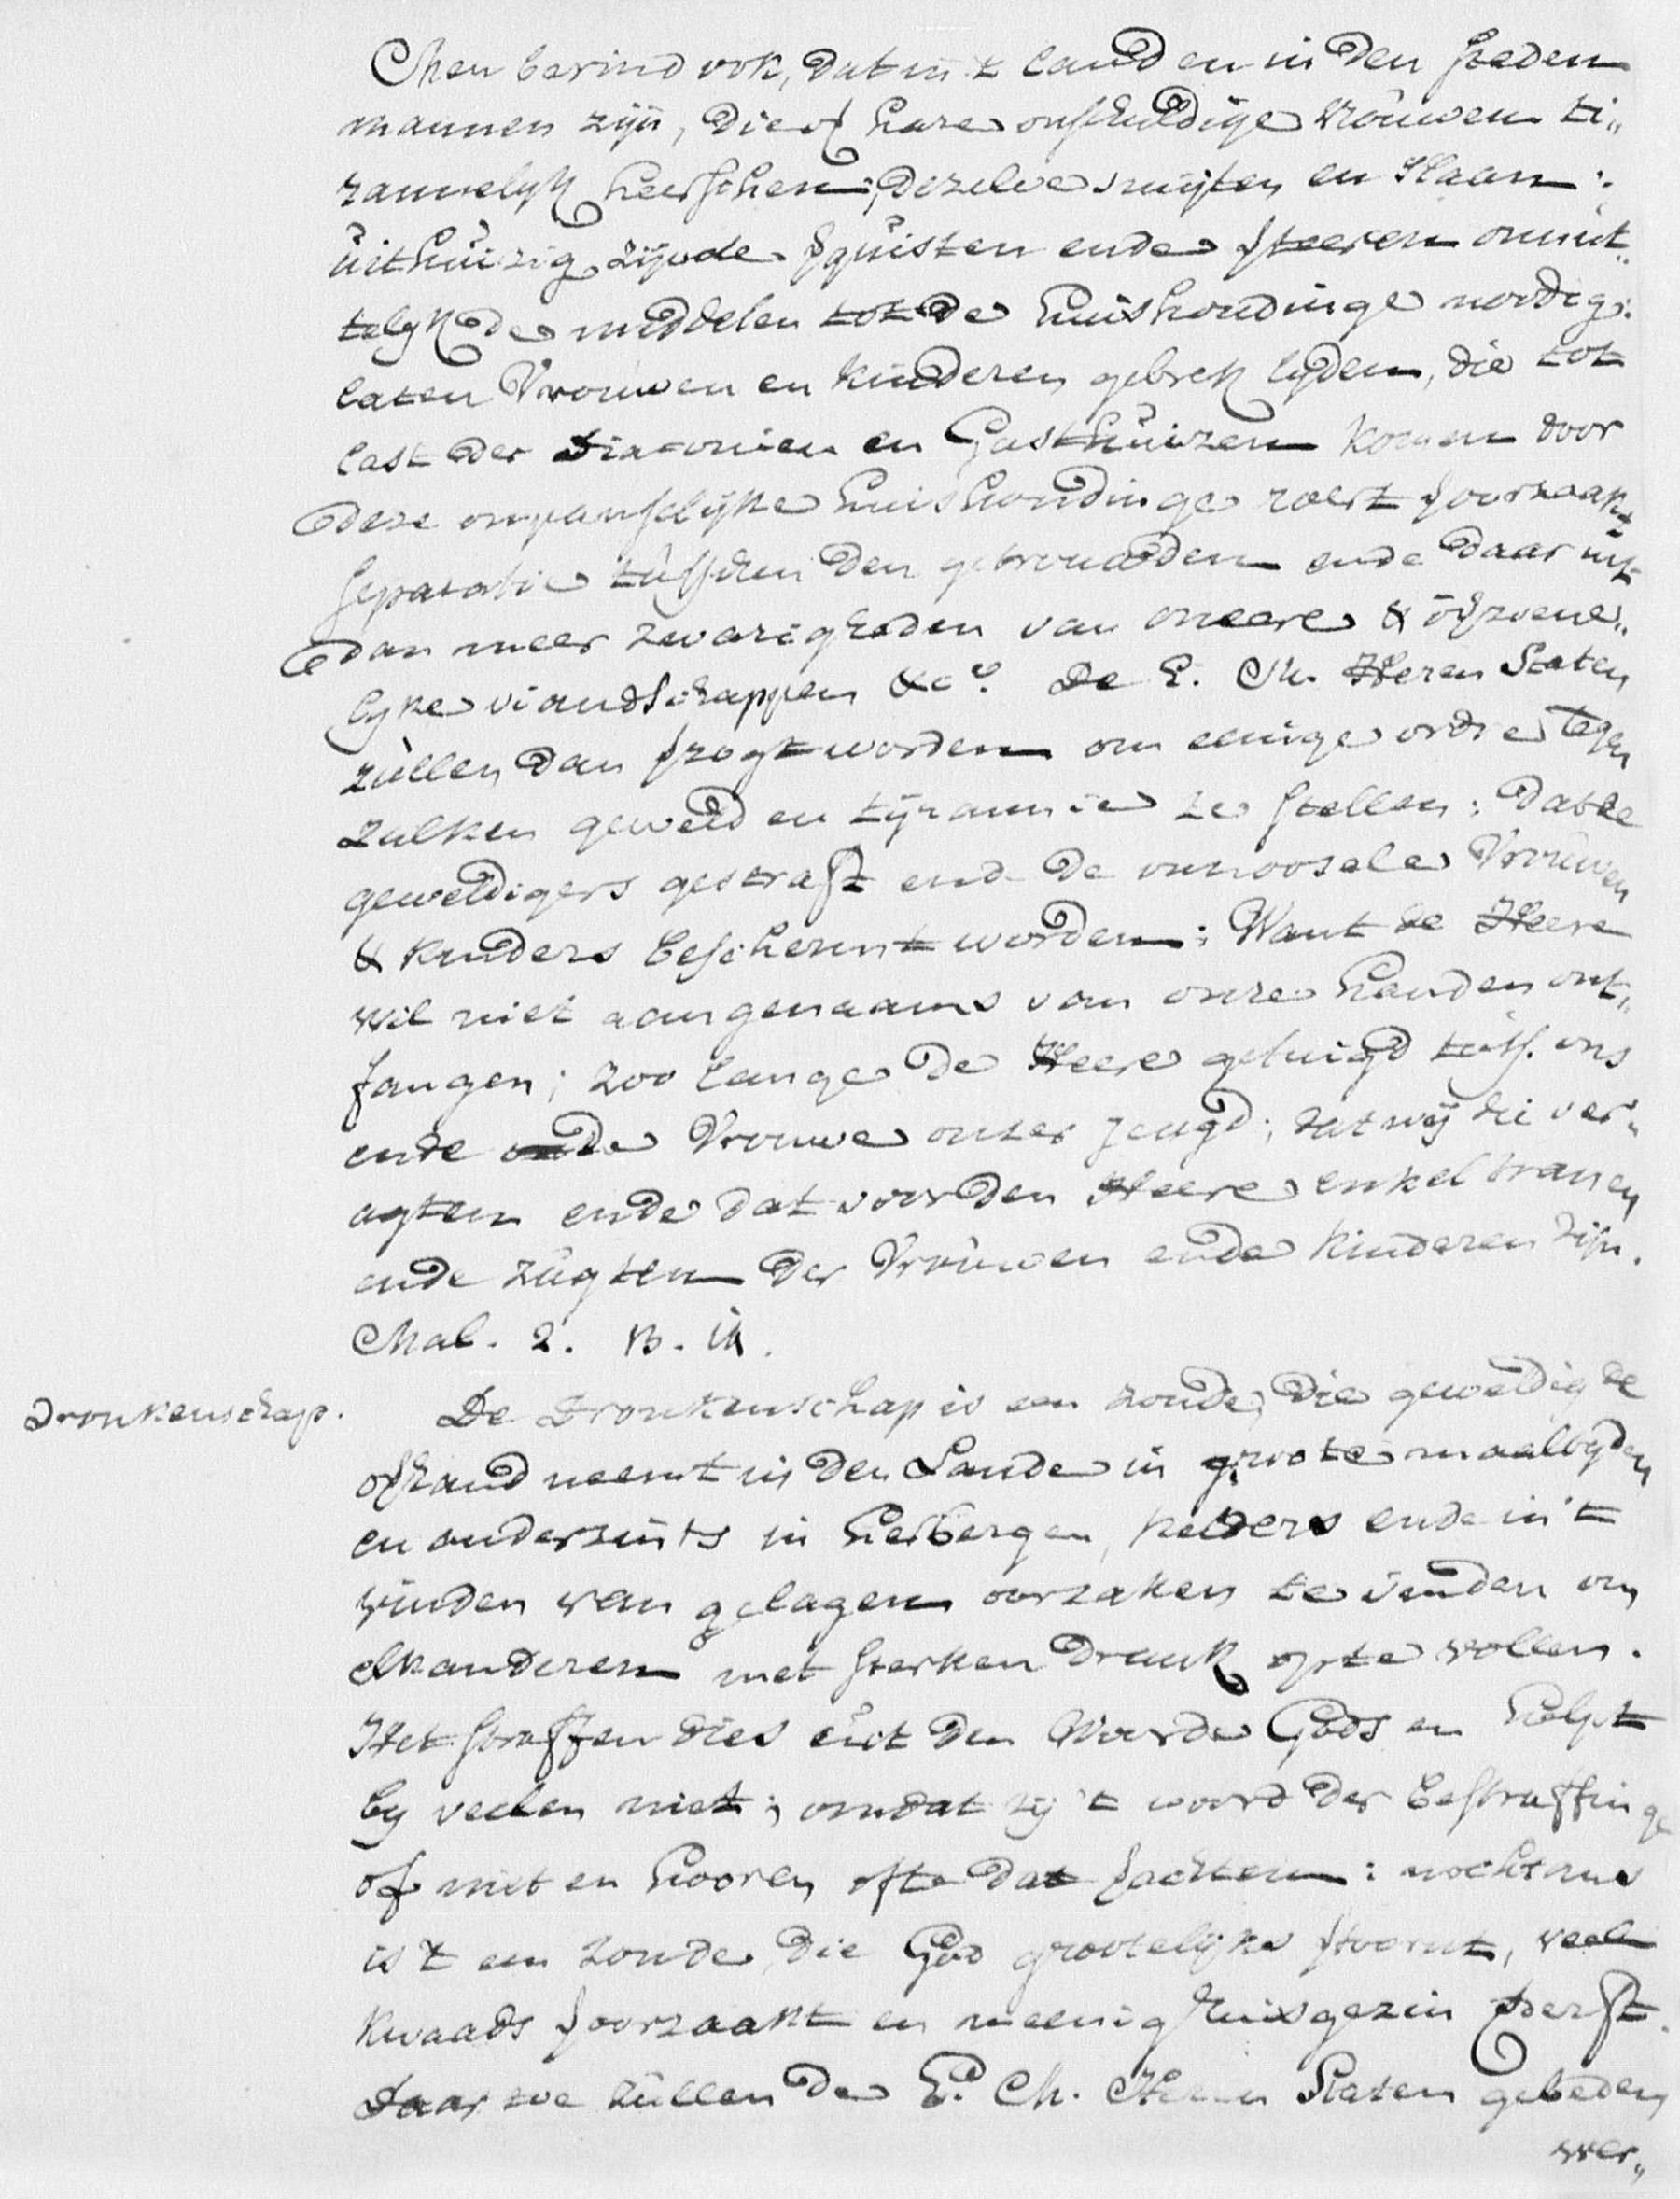 Men bevind ook, dat in 't land en in den steden
mannen zijn, die of hare onschuldige vrouwen ti„
rannelijk heerschen; dezelve smijten en slaan:
uithuizig zijnde quisten ende teeren onnut„
telijk de middelen tot de huishoudinge nordig:
laten Vrouwen en kinderen gebrek lyden, die tot
last der Diaconien en Gasthuizen komen door
deze huishoudinge
separatie tusschen den getrouwden ende daar uit
dan meer zwarigheden van oneere &
lyke viandschappen &c.ª De E. M. Heren Staten
zullen dan worden om eenige ordre tegen
zulken geweld en tijrannie te stellen: dat de
geweldigers gestraft ende de onnoosele Vrouwen
& kinders beschermt worden: Want de Heere
wil niet aangenaams van onze handen ont„
fangen; zoo lange de Heere getuigd tuss. ons
ende de Vrouwe onzer jeugd; dat wij die ver„
agten ende dat voor den Heere enkel tranen
ende zugten der Vrouwen ende kinderen zijn.
Mal. 2. 13. 14.
Dronkenschap. De Dronkenschap is een zonde, die geweldig de
overhand neemt in den Lande in groote maaltyden
en anderzints in herbergen, kelders ende in 't
vinden van gelagen oorzaken te vinden om
elkanderen met sterken drank op te vollen.
Het straffen dies uit den Woorde Gods en helpt
by veelen niet; omdat zij 't woord der bestraffinge
of niet en hooren ofte dat: nochtans
is 't een zonde, die God grootelijks, veel
kwaads veroorzaakt en meenig huisgezin bederft.
Daar zullen de E. M. Heeren Staten gebeden
wer„